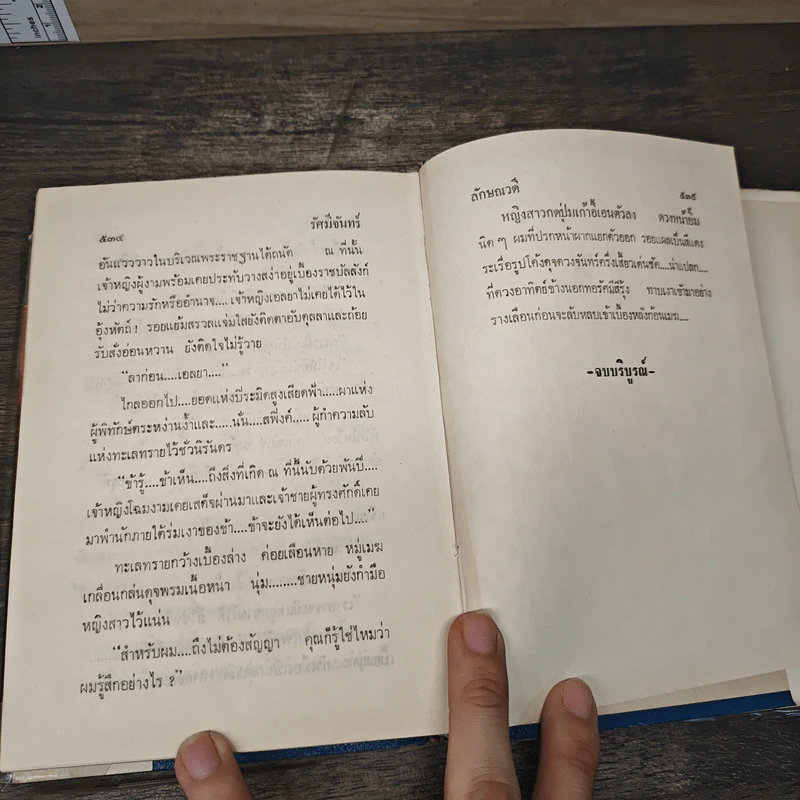 inches
1
2
๕๓๔ รัศมีจันทร์
อันแวววาวในบริเวณพระราชฐานได้ถนัด ณ ที่นั้น
เจ้าหญิงผู้งามพร้อมเคยประทับวางสง่าอยู่เบื้องราชบัลลังก์
ไม่ว่าความรักหรืออำนาจ....เจ้าหญิงเอลยาไม่เคยได้ไว้ใน
อุ้งหัตถ์! รอยแย้มสรวลแจ่มใสยังติดตาอับดุลลาและถ้อย
รับสั่งอ่อนหวาน ยังติดใจไม่รู้วาย
“ลาก่อน....เอลยา....”
ไกลออกไป....ยอดแห่งปิระมิดสูงเสียดฟ้า.....ผาแห่ง
ผู้พิทักษ์ตระหง่านง้ำและ.....นั่น....สฟิ๊งค์.....ผู้กำความลับ
แห่งทะเลทรายไว้ชั่วนิรันดร
“ข้ารู้....ข้าเห็น....ถึงสิ่งที่เกิด ณ ที่นี้นับด้วยพันปี....
เจ้าหญิงโฉมงามเคยเสด็จผ่านมาและเจ้าชายผู้ทรงศักดิ์เคย
มาพำนักภายใต้ร่มเงาของข้า....ข้าจะยังได้เห็นต่อไป....”
ทะเลทรายกว้างเบื้องล่าง ค่อยเลือนหาย หมู่เมฆ
เกลื่อนกล่นดุจพรมเนื้อหนา นุ่ม........ชายหนุ่มยังกำมือ
หญิงสาวไว้แน่น
“สำหรับผม....ถึงไม่ต้องสัญญา คุณก็รู้ใช่ไหมว่า
ผมรู้สึกอย่างไร ?”
ลักษณวดี ๕๓๕
หญิงสาวกดปุ่มเก้าอี้เอนตัวลง ดวงหน้ายิ้ม
นิดๆ ผมที่ปรกหน้าผากแยกตัวออก รอยแผลเป็นสีแดง
ระเรื่อรูปโค้งดุจดวงจันทร์ครึ่งเสี้ยวเด่นชัด....น่าแปลก....
ที่ดวงอาทิตย์ข้างนอกทอรัศมีสีรุ้ง ทาบเงาเข้ามาอย่าง
รางเลือนก่อนจะลับหลบเข้าเบื้องหลังก้อนเมฆ....
-จบบริบูรณ์-